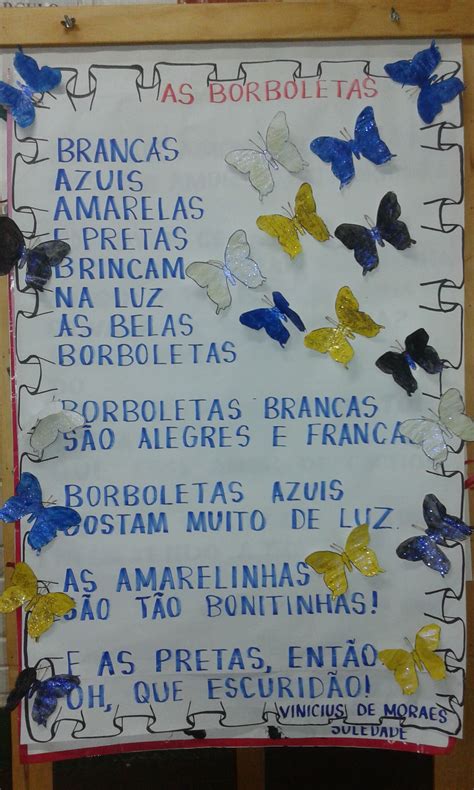 AS BORBOLETAS
BRANCAS
AZUIS
AMARELAS
E PRETAS
BRINCAM
NA LUZ
AS BELAS
BORBOLETAS
BORBOLETAS BRANCAS
SÃO ALEGRES E FRANCA
BORBOLETAS AZUIS
GOSTAM MUITO DE LUZ.
AS AMARELINHAS
SÃO TÃO BONITINHAS!
E AS PRETAS, ENTÃO
OH, QUE ESCURIDÃO!
VINICIUS DE MORAES
SOLEDADE